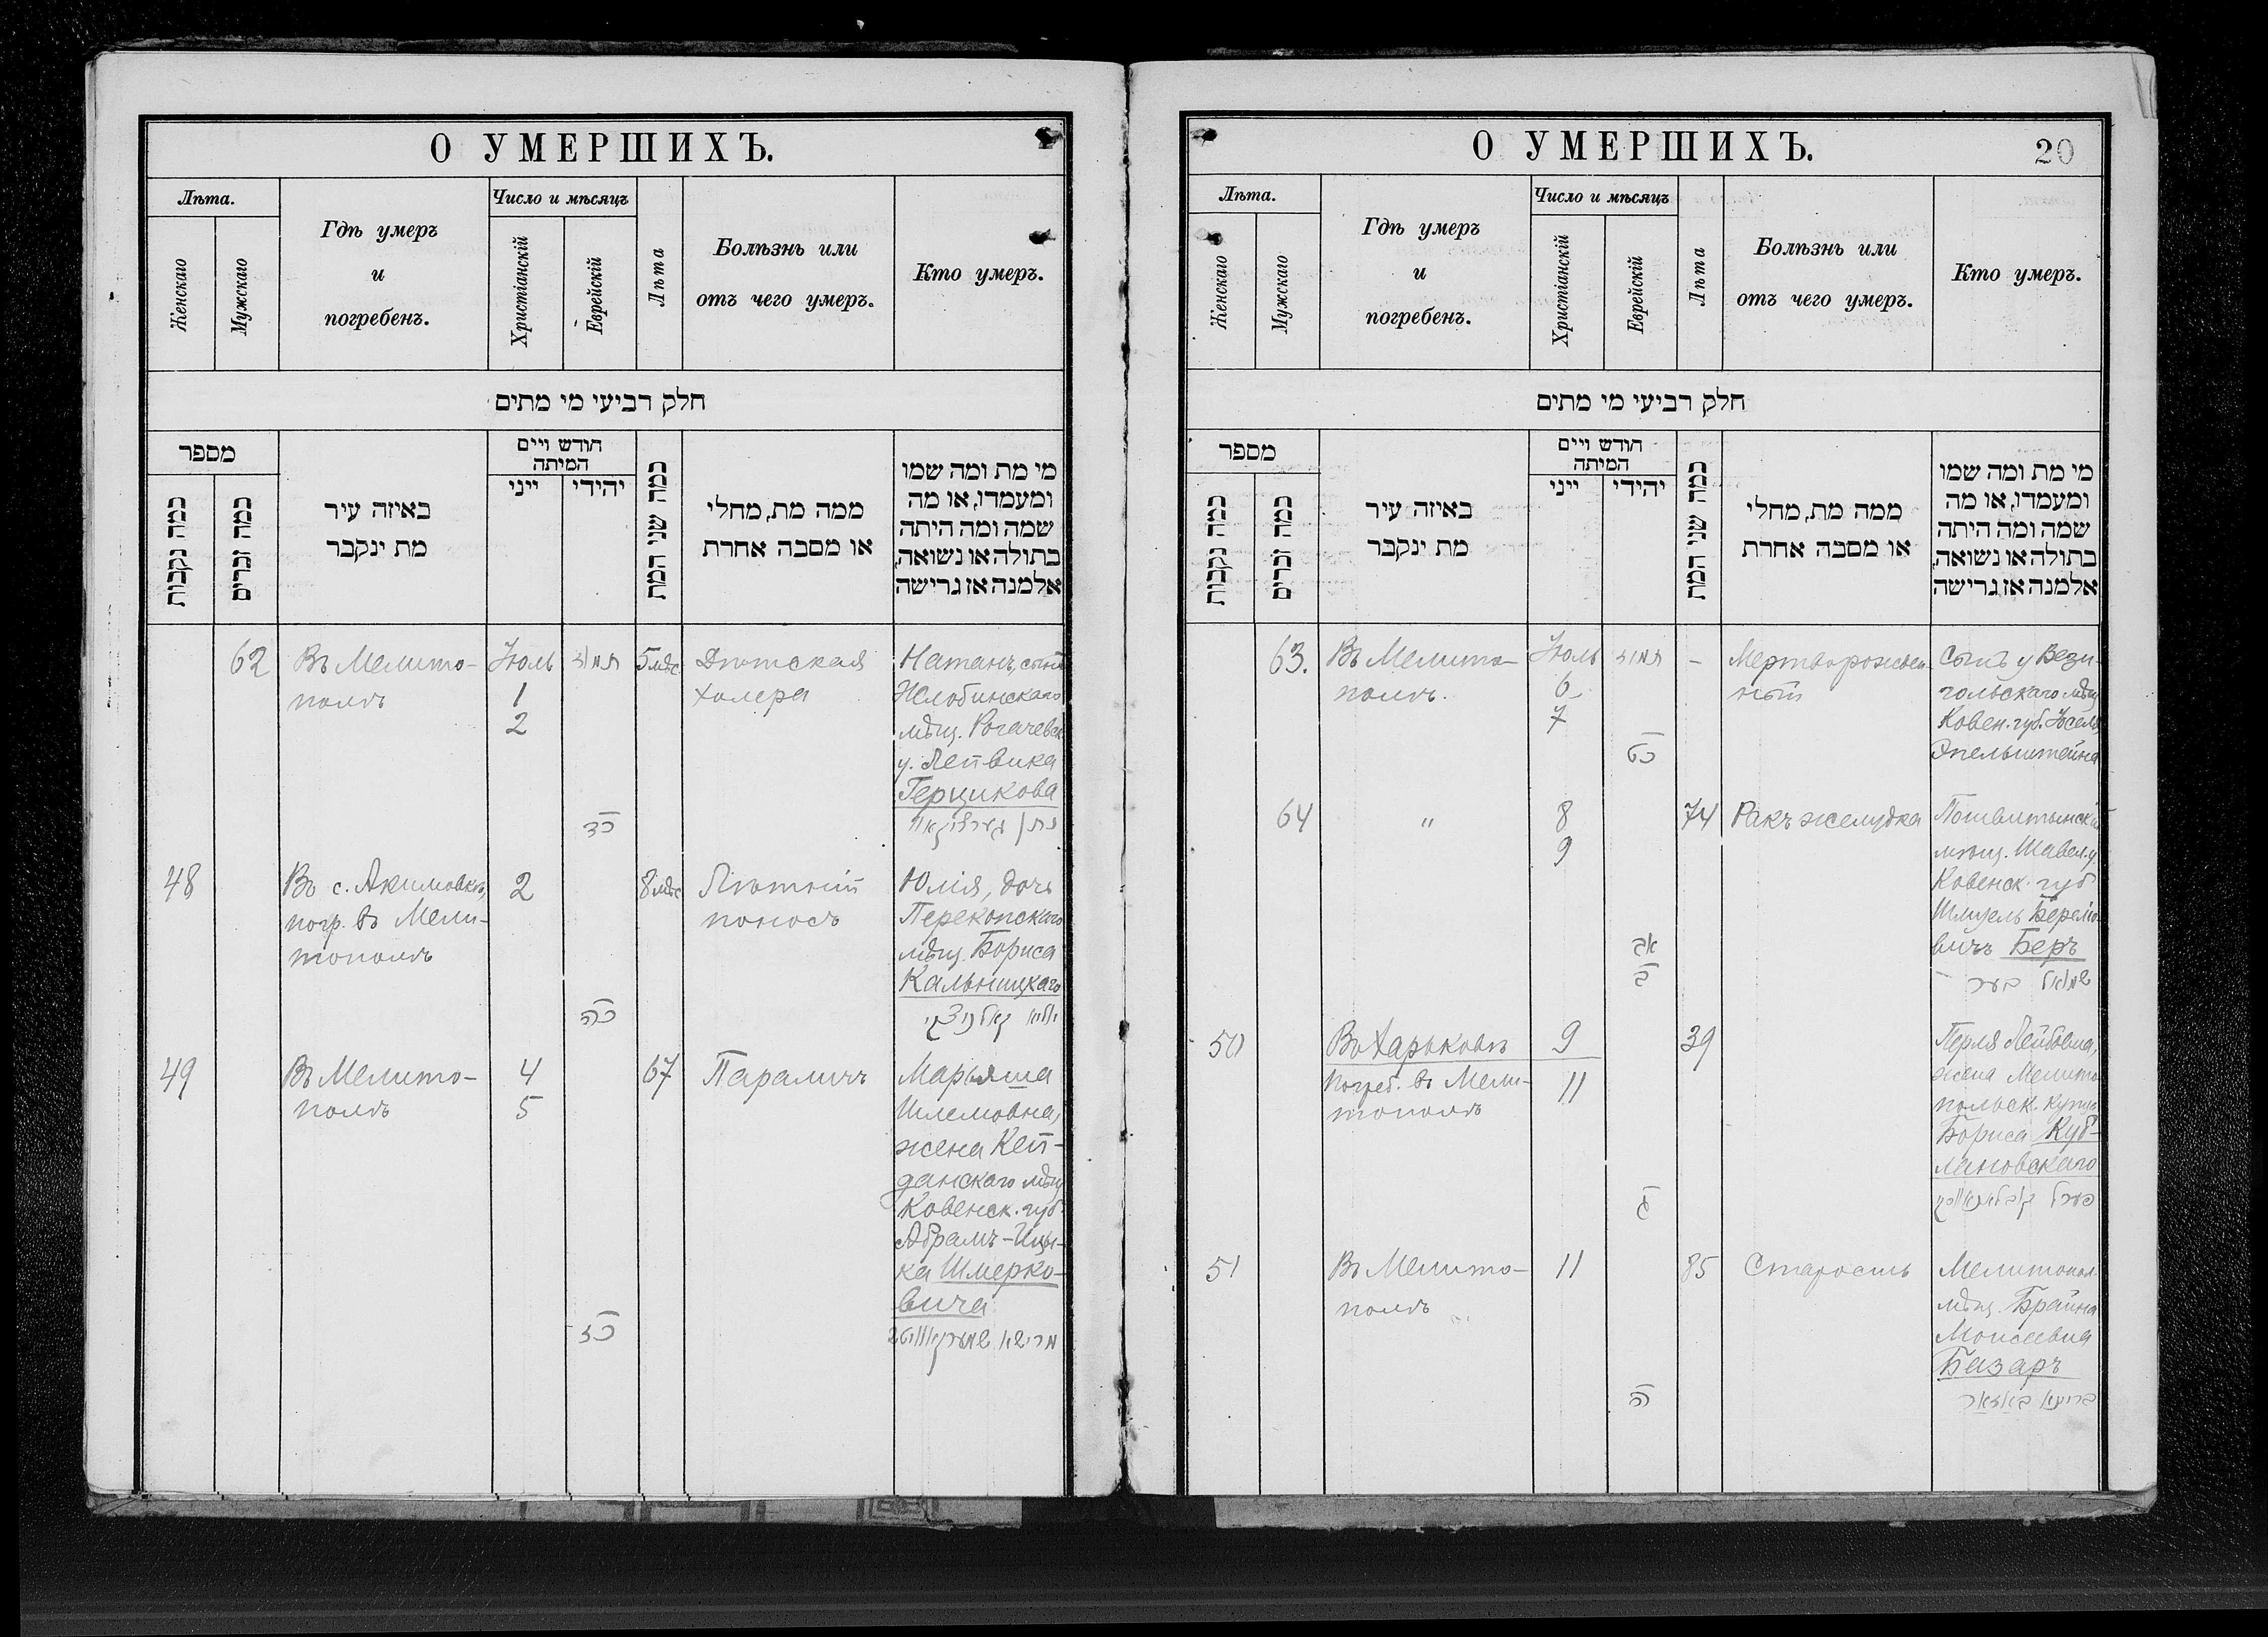 О УМЕРШИХЪ.
Лѣта.
Женскаго
Мужскаго
Гдѣ умеръ
и
погребенъ.
Число и мѣсяцъ
Христіанскій
Еврейскій
Лѣта
Болѣзнь или
отъ чего умеръ.
Кто умеръ.
חלק רביעי מי מתים
מספר
כמה נקבות
כמה זכרים
באיזה עיר
מת ינקבר
חודש ויים
המיתה
ייני
יהידי
כמה שני המת
ממה מת, מחלי
או מסבה אחרת
מי מת ומה שמו
ומעמדו, או מה
שמה ומה היתה
בתולה או נשואה,
אלמנה אז גרישה
62
Въ Мелито-
полѣ
Іюль
1
2
תמוז
כד
5 мѣс
Дѣтская
холера
Натанъ, сынъ
Жлобинскаго
мѣщ. Рогачевск
у. Лейвика
Герцикова
נתן גערציקאוו
48
Въ с. Акимовкѣ,
погр. въ Мели-
тополѣ
2
כה
8 мѣс
Лѣтній
поносъ
Юлія, дочь
Перекопскаго
мѣщ. Бориса
Кальницкаго
יוליא קאלניצקי
49
Въ Мелито-
полѣ
4
5
כז
67
Параличъ
Марьяша
Шлемовна,
жена Кей-
данскаго мѣщ
Ковенск. губ.
Абрамъ-Ицы-
ка Шмерко-
вича
О УМЕРШИХЪ.
20
Лѣта.
Женскаго
Мужскаго
Гдѣ умеръ
и
погребенъ.
Число и мѣсяцъ
Христіанскій
Еврейскій
Лѣта
Болѣзнь или
отъ чего умеръ.
Кто умеръ.
חלק רביעי מי מתים
מספר
כמה נקבות
כמה זכרים
באיזה עיר
מת ינקבר
חודש ויים
המיתה
ייני
יהידי
כמה שני המת
ממה מת, מחלי
או מסבה אחרת
מי מת ומה שמו
ומעמדו, או מה
שמה ומה היתה
בתולה או נשואה,
אלמנה אז גרישה
63.
Въ Мелито-
полѣ.
Іюль
6
7
תמוז
כט
-
Мертворожден-
ный
Сынъ у Вези-
гольскаго мѣщ
Ковен. губ. Іоселя
Эпельштейна
64
"
8
9
אב
ב
74
Ракъ желудка
мѣщ. Шавел. у.
Ковенск. губ
Беръ
שמואל בער
50
Въ Харьковѣ
погреб. въ Мели-
тополѣ
9
11
ג
39
Перля Лейбовна,
жена Мелито
польск. купца
Бориса Куб-
лановскаго
פערל קובלאנאווסקי
51
Въ Мелито-
полѣ
11
ה
85
Старость
Мелитопол.
мѣщ. Брайна
Моисеевна
Базаръ
בריינא באזאר